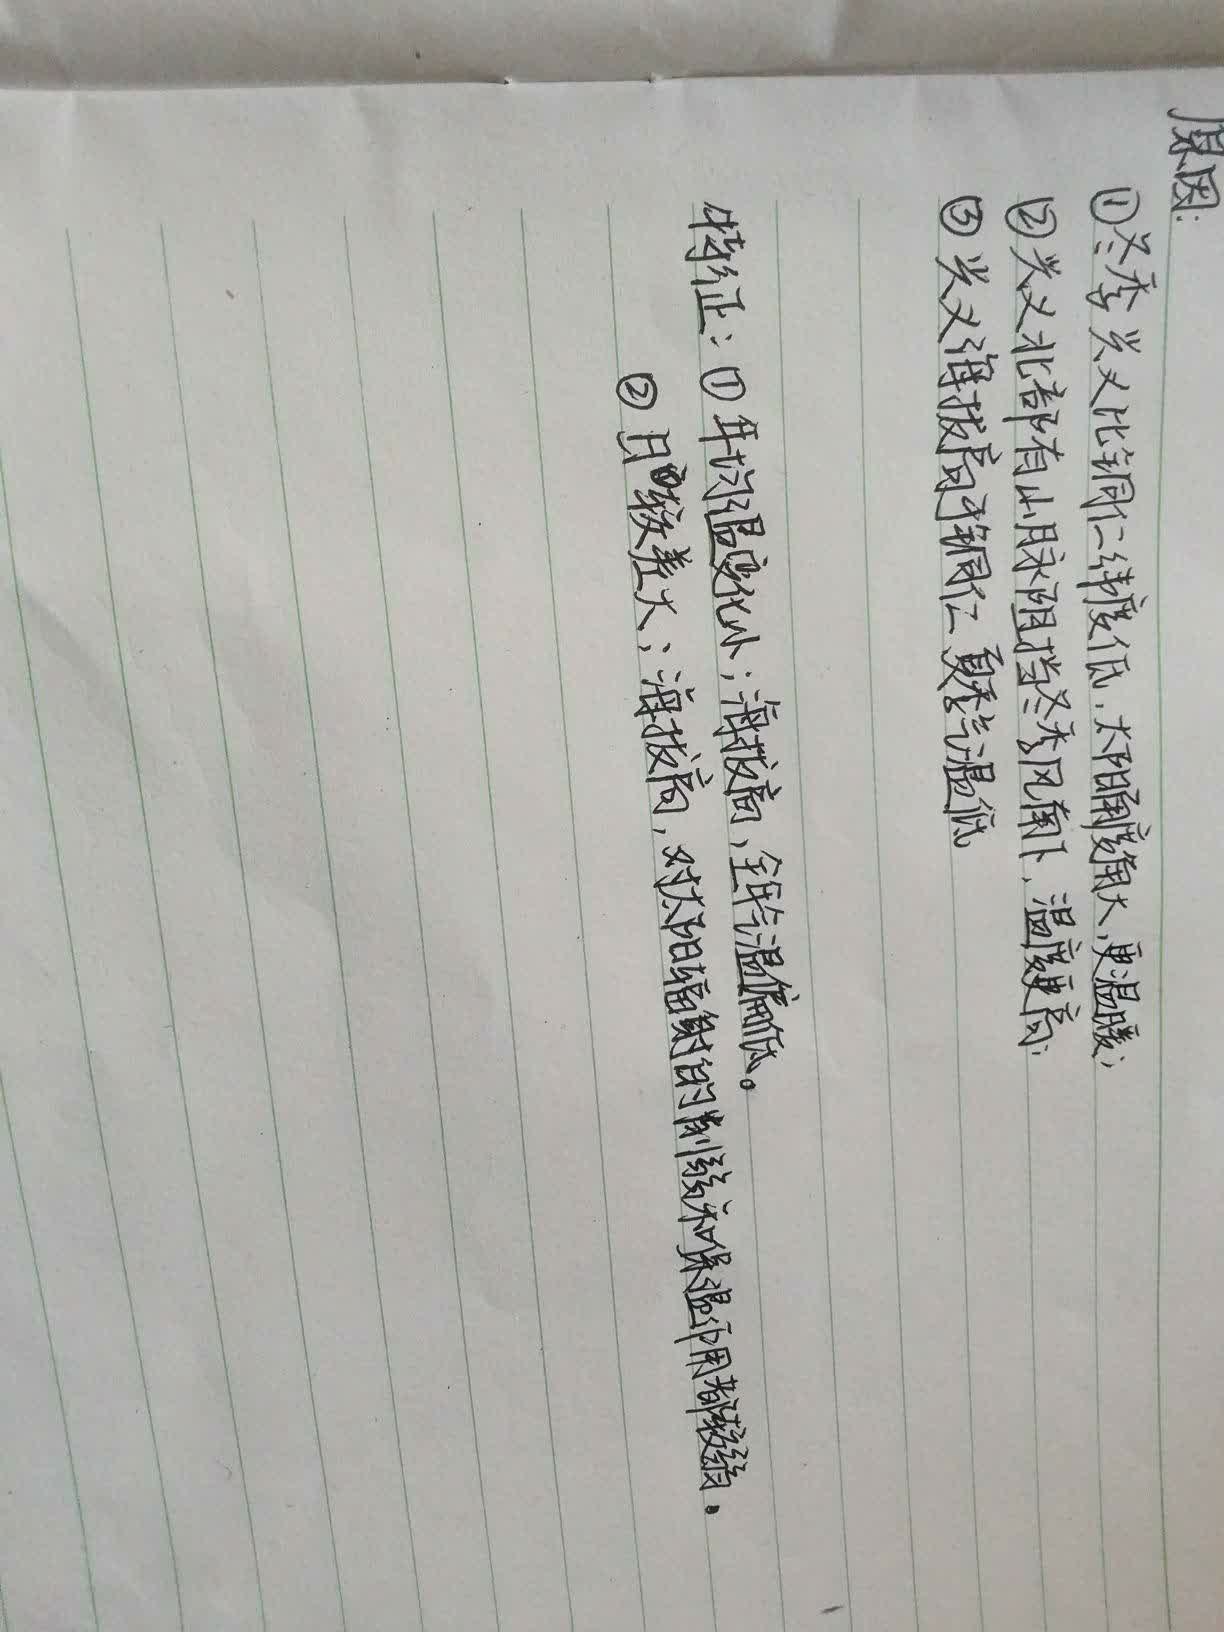 原因:
①冬季兴义比铜仁纬度低,太阳高度角大,更温暖;
②兴义北部有山脉阻挡冬季风南下,温度更高;
③兴义海拔高于铜仁夏季气温低
特征:①年均温变化小;海拔高,全年气温偏低。
②日较差大;海拔高,对太阳辐射的削弱和保温作用都较弱.